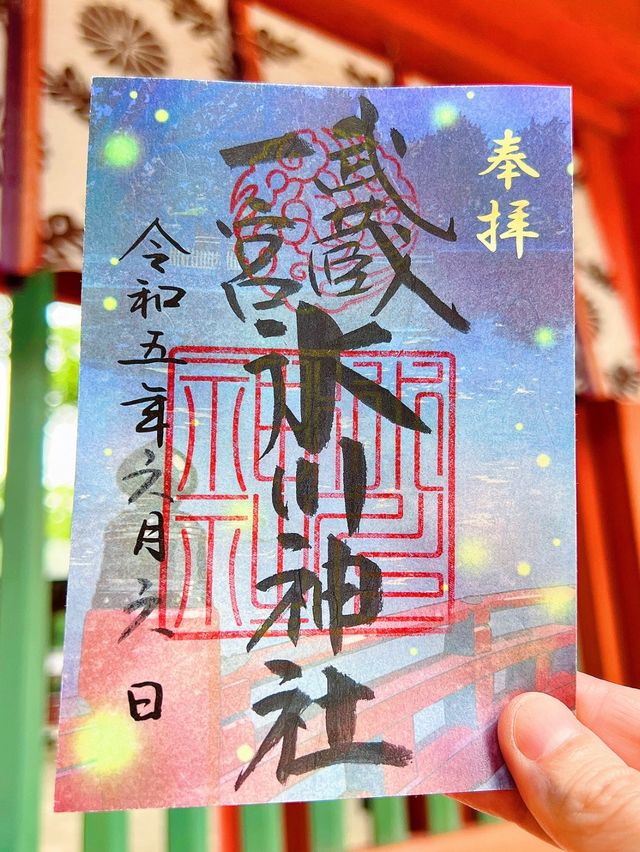 奉拝
武蔵
一宮
氷川神社
令和五年六月六日